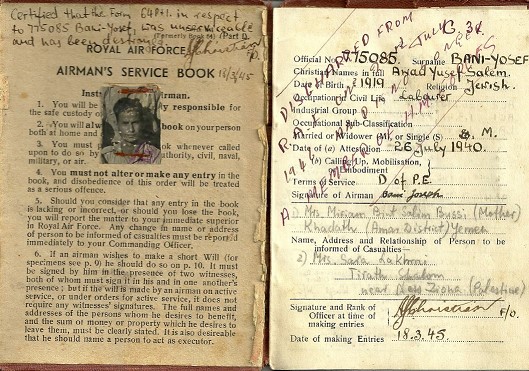 Certified that the Form 64 Pt I. in respect
to 775085 Bani-Yosef, was unserviceable
and has been
(Formerly Book 64) (Part
18/3/45
ROYAL AIR FORCE
AIRMAN'S SERVICE BOOK
Airman.
1. You will be responsible for
the safe custody of
2. You will book on your person
both at home and
3. You must whenever called
upon to do so by authority, civil, naval,
military, or air.
4. You must not alter or make any entry in the
book, and disobedience of this order will be treated
as a serious offence.
5. Should you consider that any entry in the book
is lacking or incorrect, or should you lose the book,
you will report the matter to your immediate superior
in Royal Air Force. Any change in name or address
of person to be informed of casualties must be reported
immediately to your Commanding Officer.
6. If an airman wishes to make a short Will (for
specimens see p. 9) he should do so on p. 10. It must
be signed by him in the presence of two witnesses,
both of whom must sign it in his and in one another's
presence; but if the will is made by an airman on active
service, or under orders for active service, it does not
require any witnesses' signatures. The full names and
addresses of the persons whom he desires to benefit,
and the sum or money or property which he desires to
leave them, must be clearly stated. It is also desireable
that he should name a person to act as executor.
DISCHARGED FROM
Official No. 775085. Surname BANI-YOSEF
Christian Names in full Ayad Yusef Salem.
Date of Birth 1919 Religion Jewish.
Occupation in Civil Life Labourer
Industrial Group
Occupational Sub-Classification
Married or Widower (M), or Single (S) M.
Date of (a) Attestation 26 July 1940.
(b) Calling Up, Mobilisation,
Embodiment
Terms of Service D of P.E
Signature of Airman Bani Joseph
Mrs. Miriam Bint Salim (Mother)
Khadath (Amas District) Yemen
Name, Address and Relationship of Person to be
informed of Casualties
2) Mrs Sara
Tirath Shalom
near Ness Ziona (Palestine)
Signature and Rank of
Officer at time of
making entries
F/O.
Date of making Entries 18.3.45.